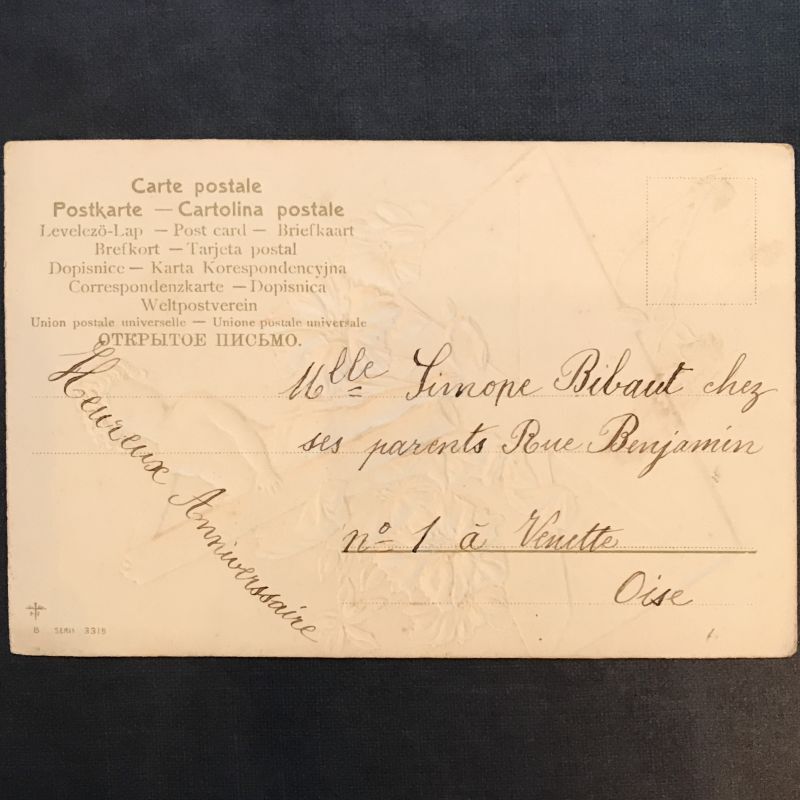 Carte postale
Postkarte — Cartolina postale
Levelezö-Lap — Post card — Briefkaart
Brefkort — Tarjeta postal
Dopisnice — Karta Korespondencyjna
Correspondenzkarte — Dopisnica
Weltpostverein
Union postale universelle — Unione postale universale
ОТКРЫТОЕ ПИСЬМО.
Heureux Anniverssaire
Mlle Simone Bibaut chez
ses parents Rue Benjamin
nº 1 à Venette
Oise
B SERIE 3318